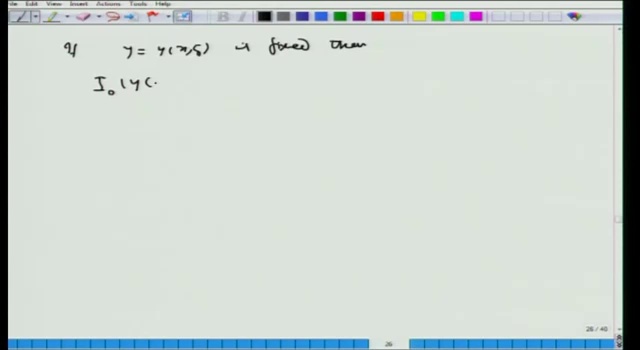 File Edit View Insert Actions Tools Help
If y = y(x,s) is fixed then
I₀(y(.
26 / 40
26